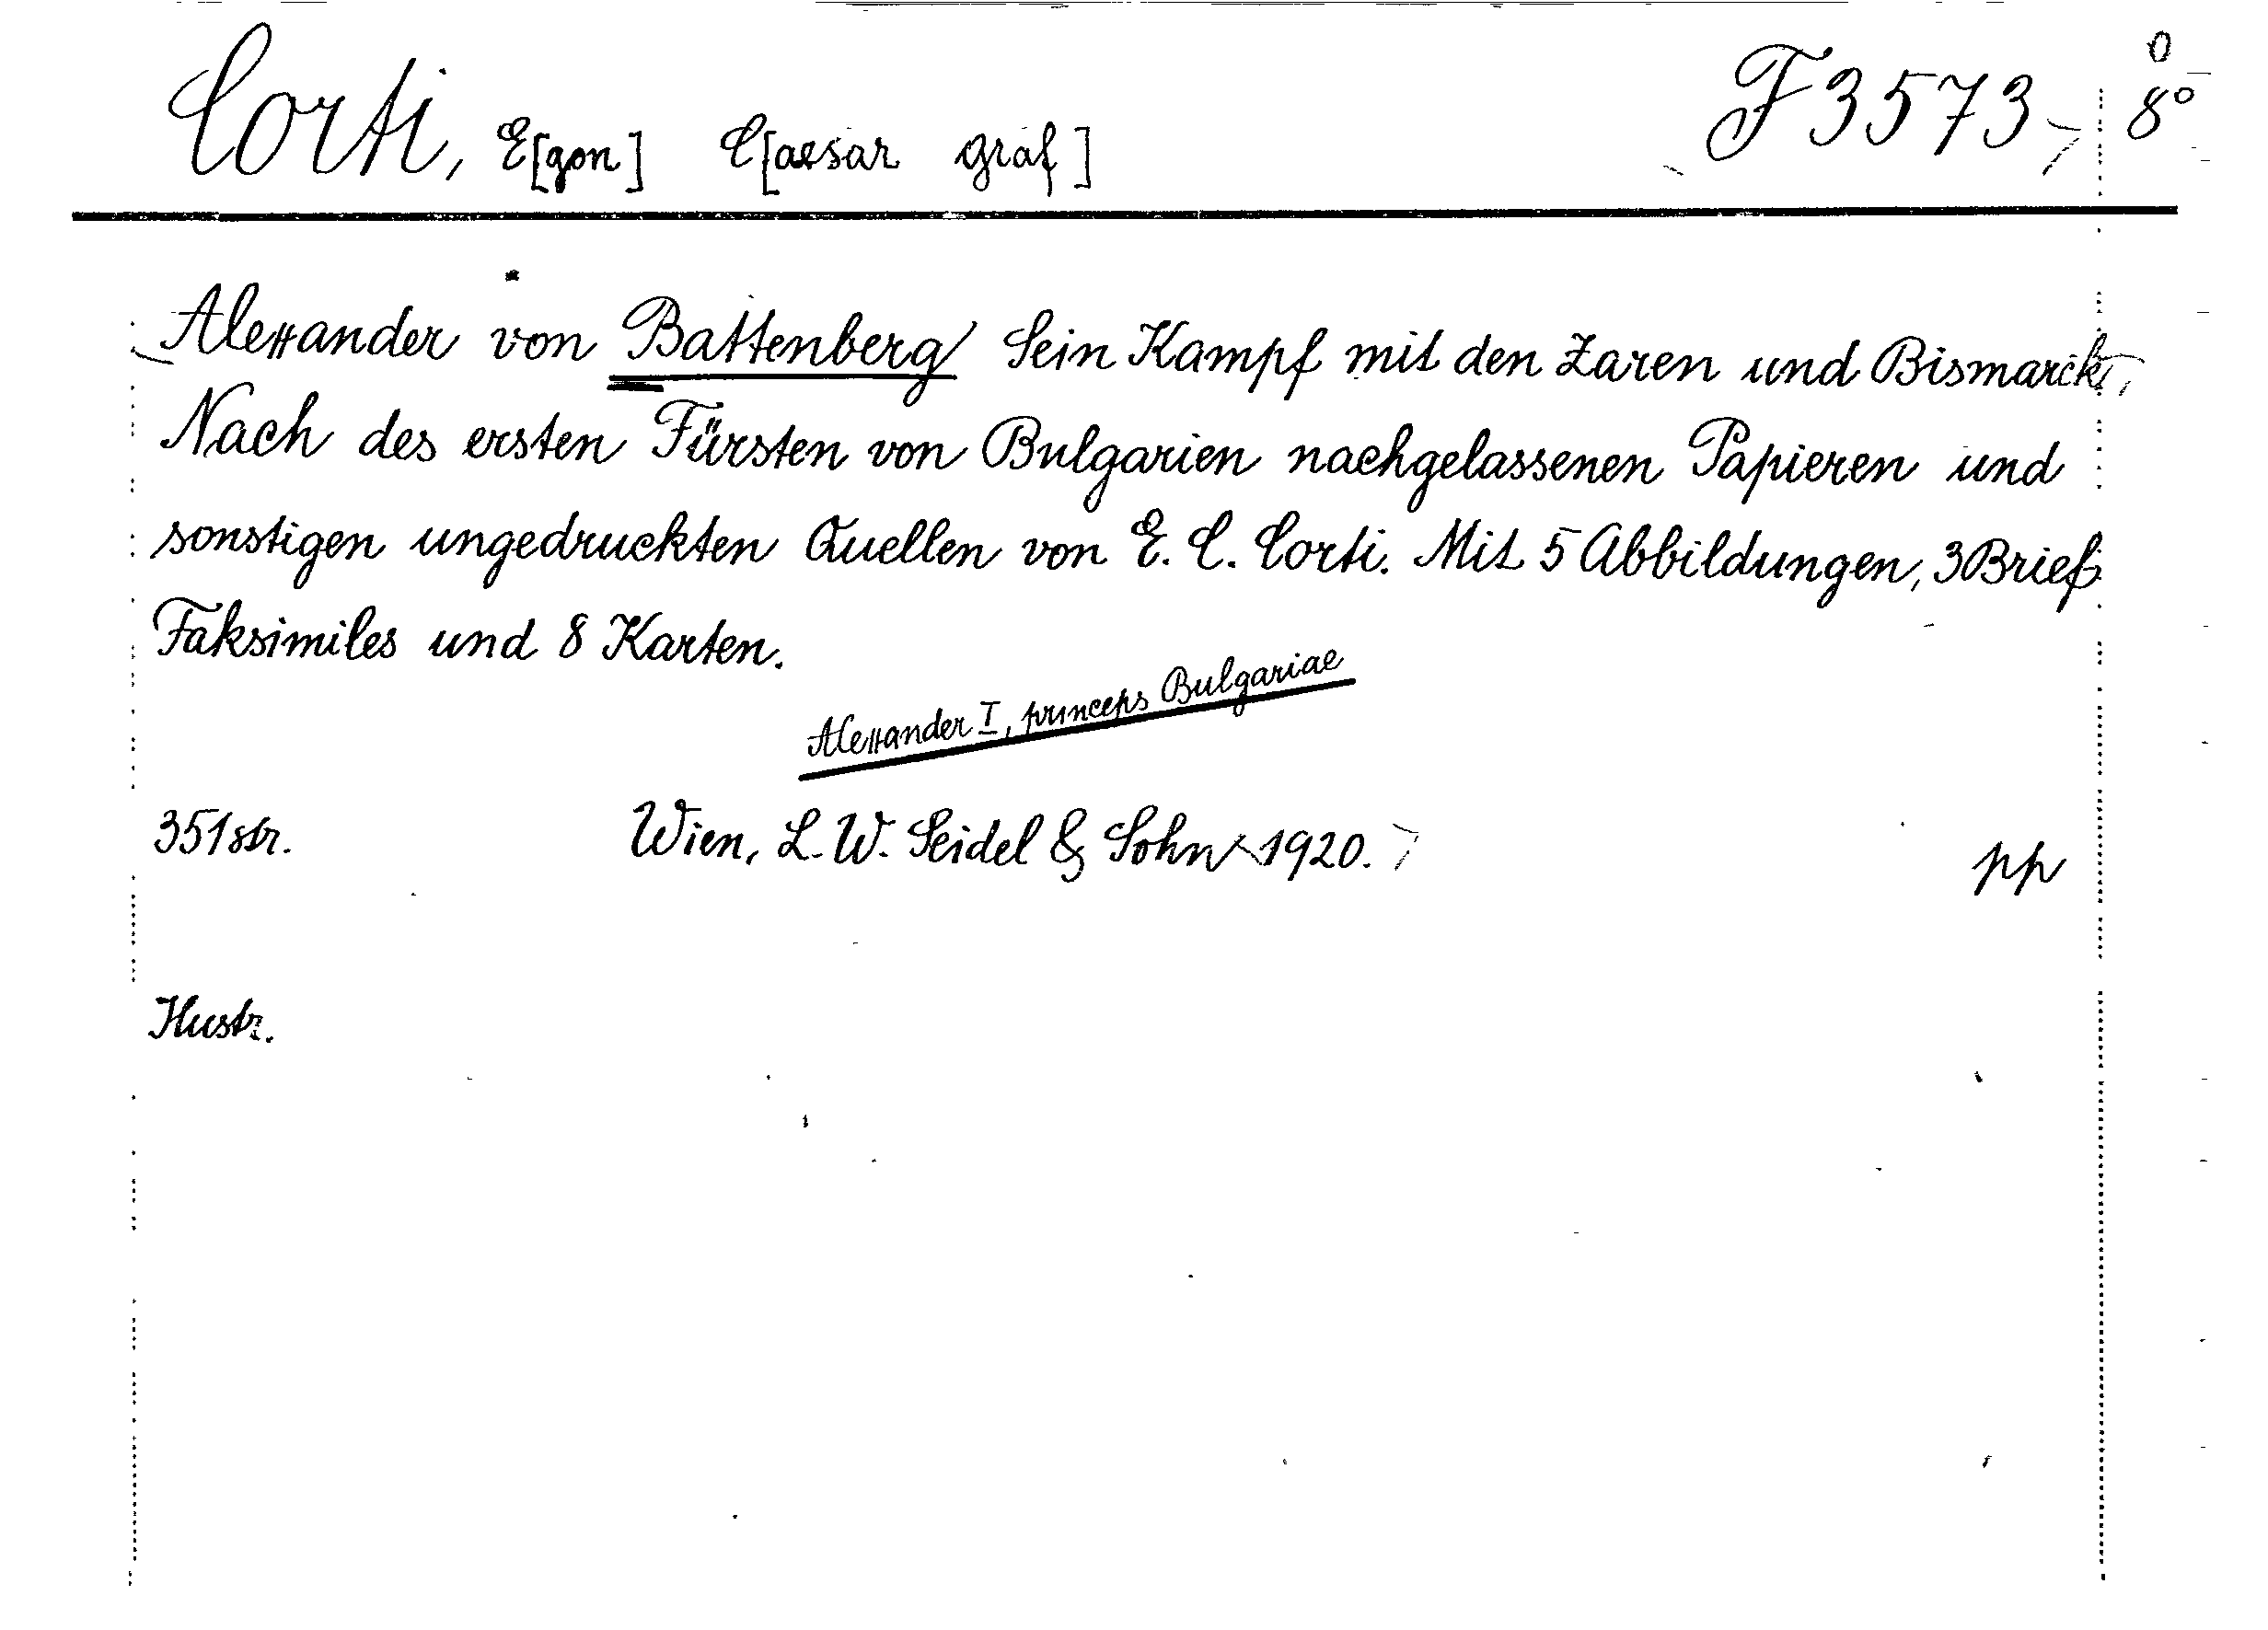 Corti, E[gon] C[aesar graf] F 3573, 8°
Alexander von Battenberg Sein Kampf mit den Zaren und Bismarck,
Nach des ersten Fürsten von Bulgarien nachgelassenen Papieren und
sonstigen ungedruckten Quellen von E. C. Corti. Mit 5 Abbildungen, 3 Brief-
Faksimiles und 8 Karten.
Alexander I, princeps Bulgariae
351 str. Wien, L. W. Seidel & Sohn, 1920. pp
Ilustr.